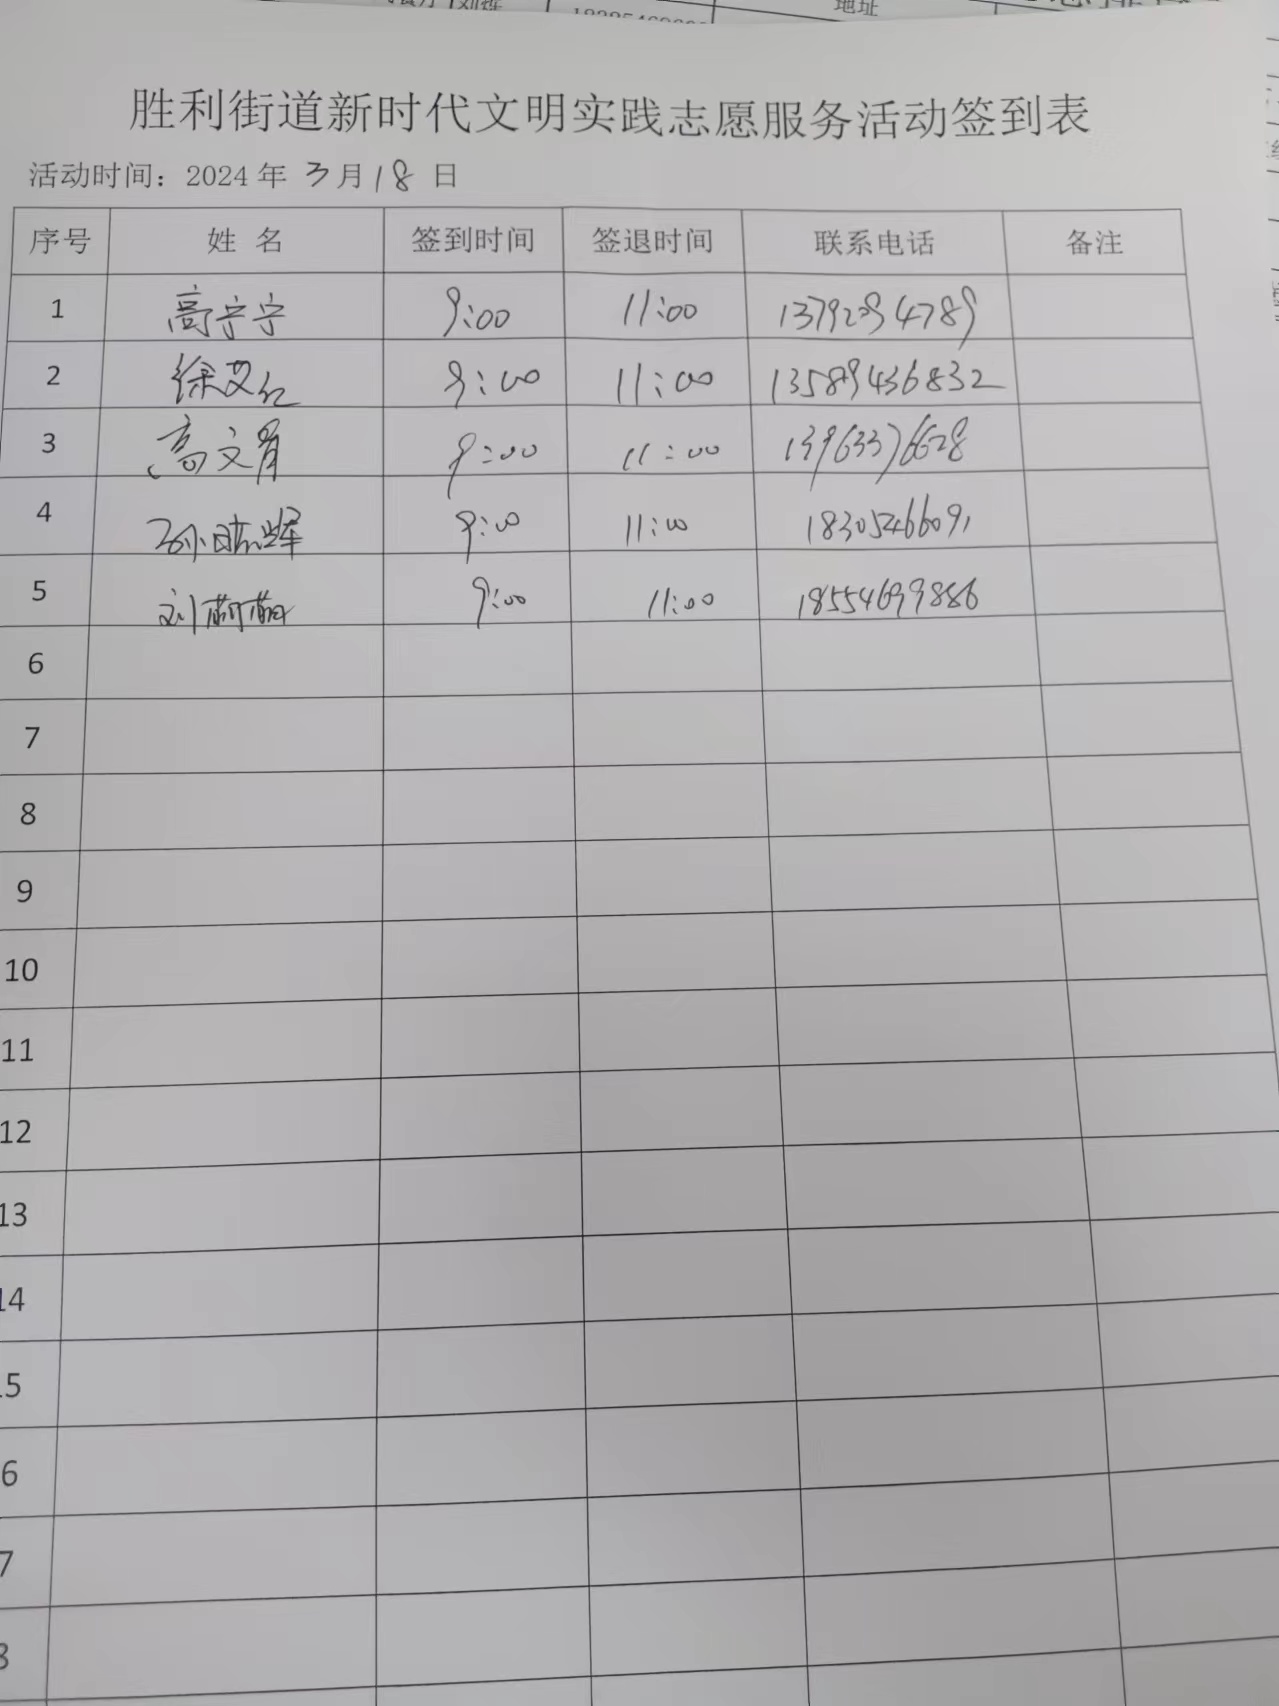 地址
胜利街道新时代文明实践志愿服务活动签到表
活动时间：2024 年 3月18 日
序号 姓 名 签到时间 签退时间 联系电话 备注
1 高宁宁 9:00 11:00 13792094789
2 徐艾红 9:00 11:00 13589436832
3 高文 9:00 11:00 13963376628
4 孙晓辉 9:00 11:00 18305466091
5 刘萌萌 9:00 11:00 18554699886
6
7
8
9
10
11
12
13
14
15
6
7
8